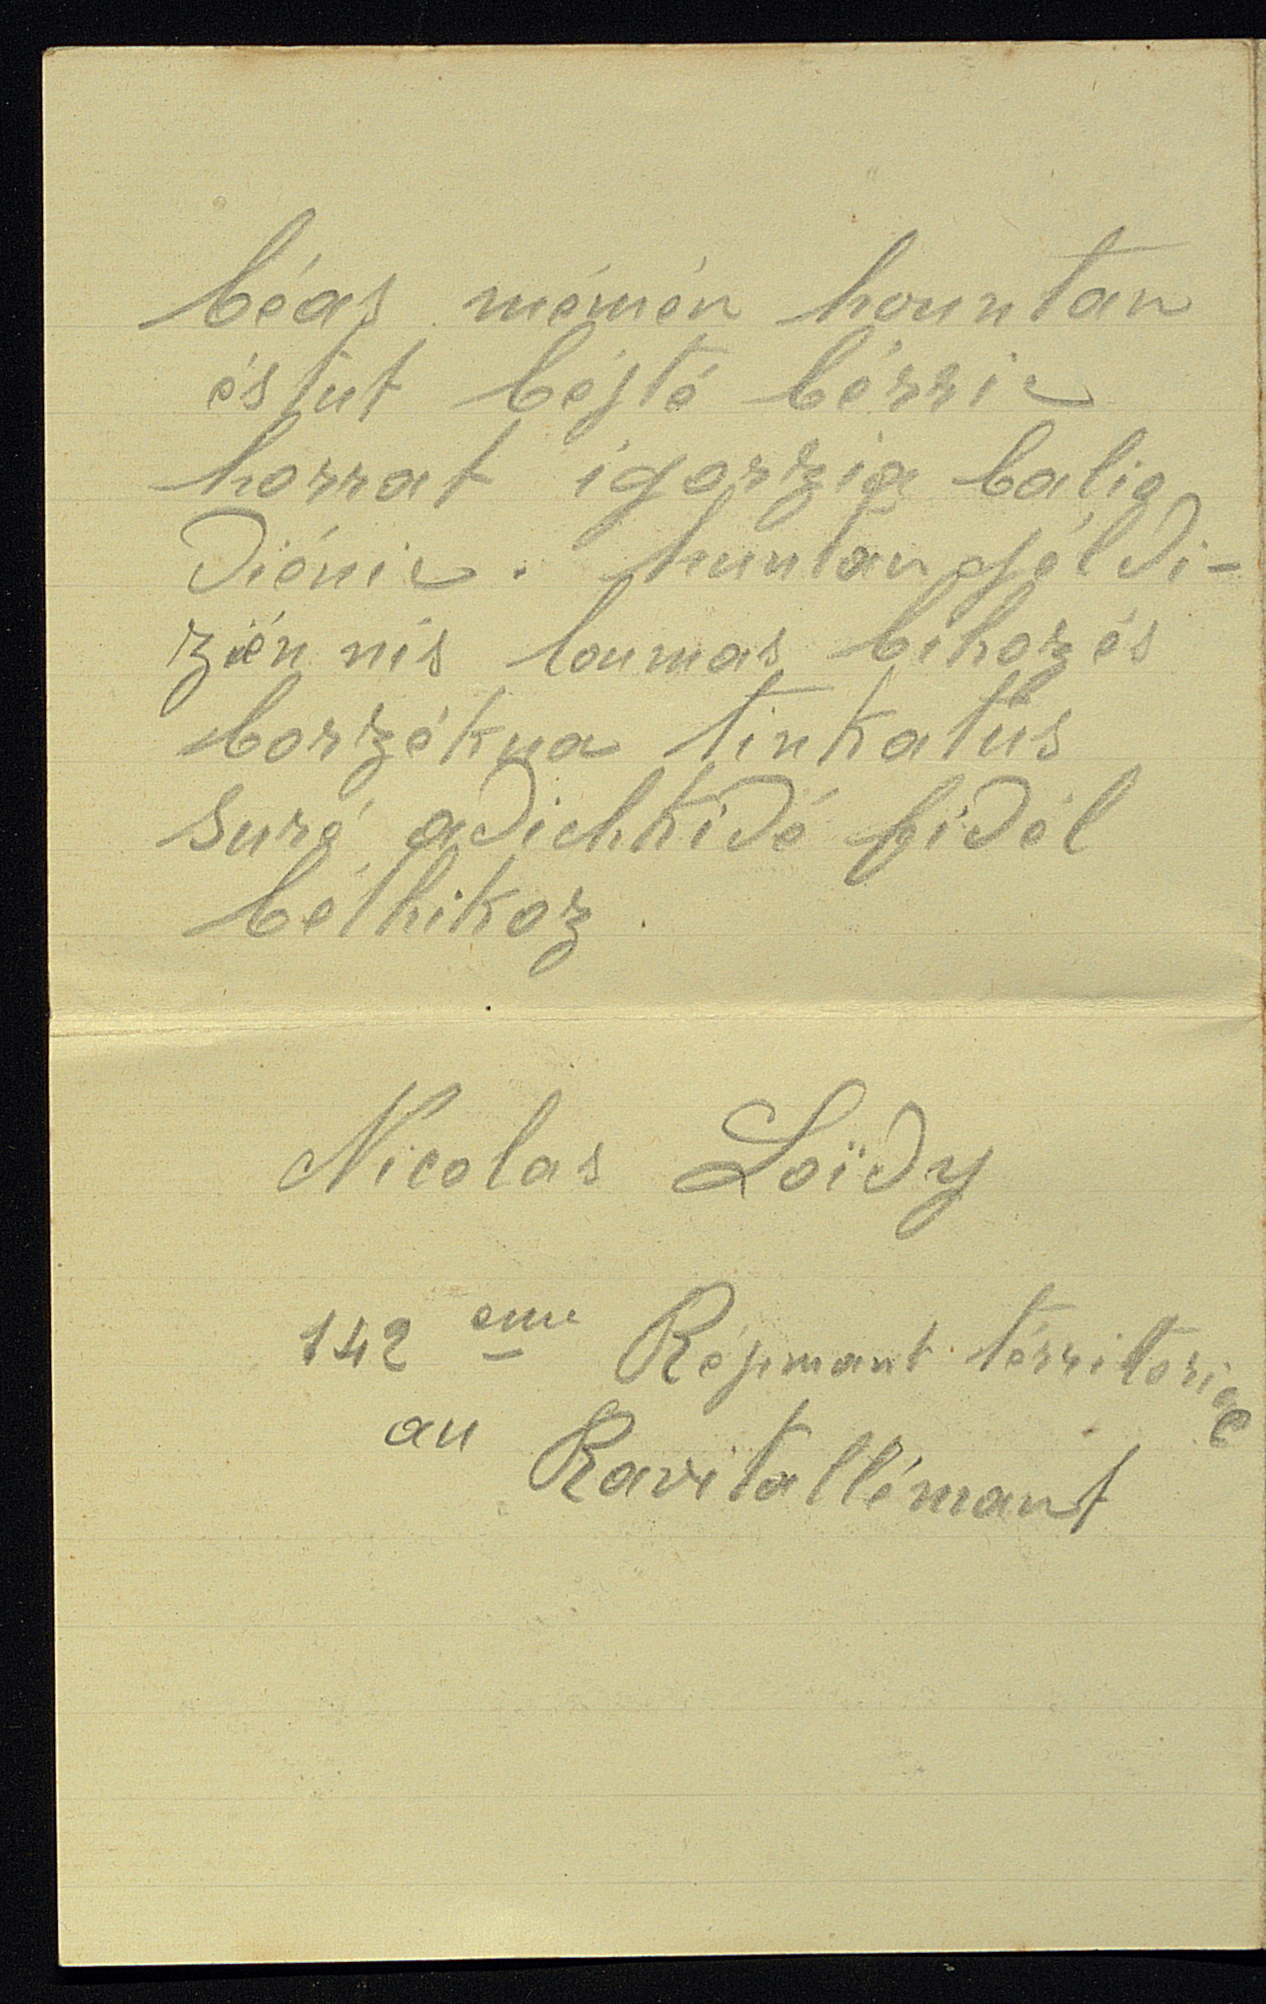 béas mémén hountan
éstut béjté bérric
horrat igorzia balia
diénic. huntan géldi-
zién nis loumas bihozés
borzékua tinkatus
suré adichkidé fidél
béthikoz.
Nicolas Loïdy
142 eme Réjimant térritoriae
au Ravitallémant